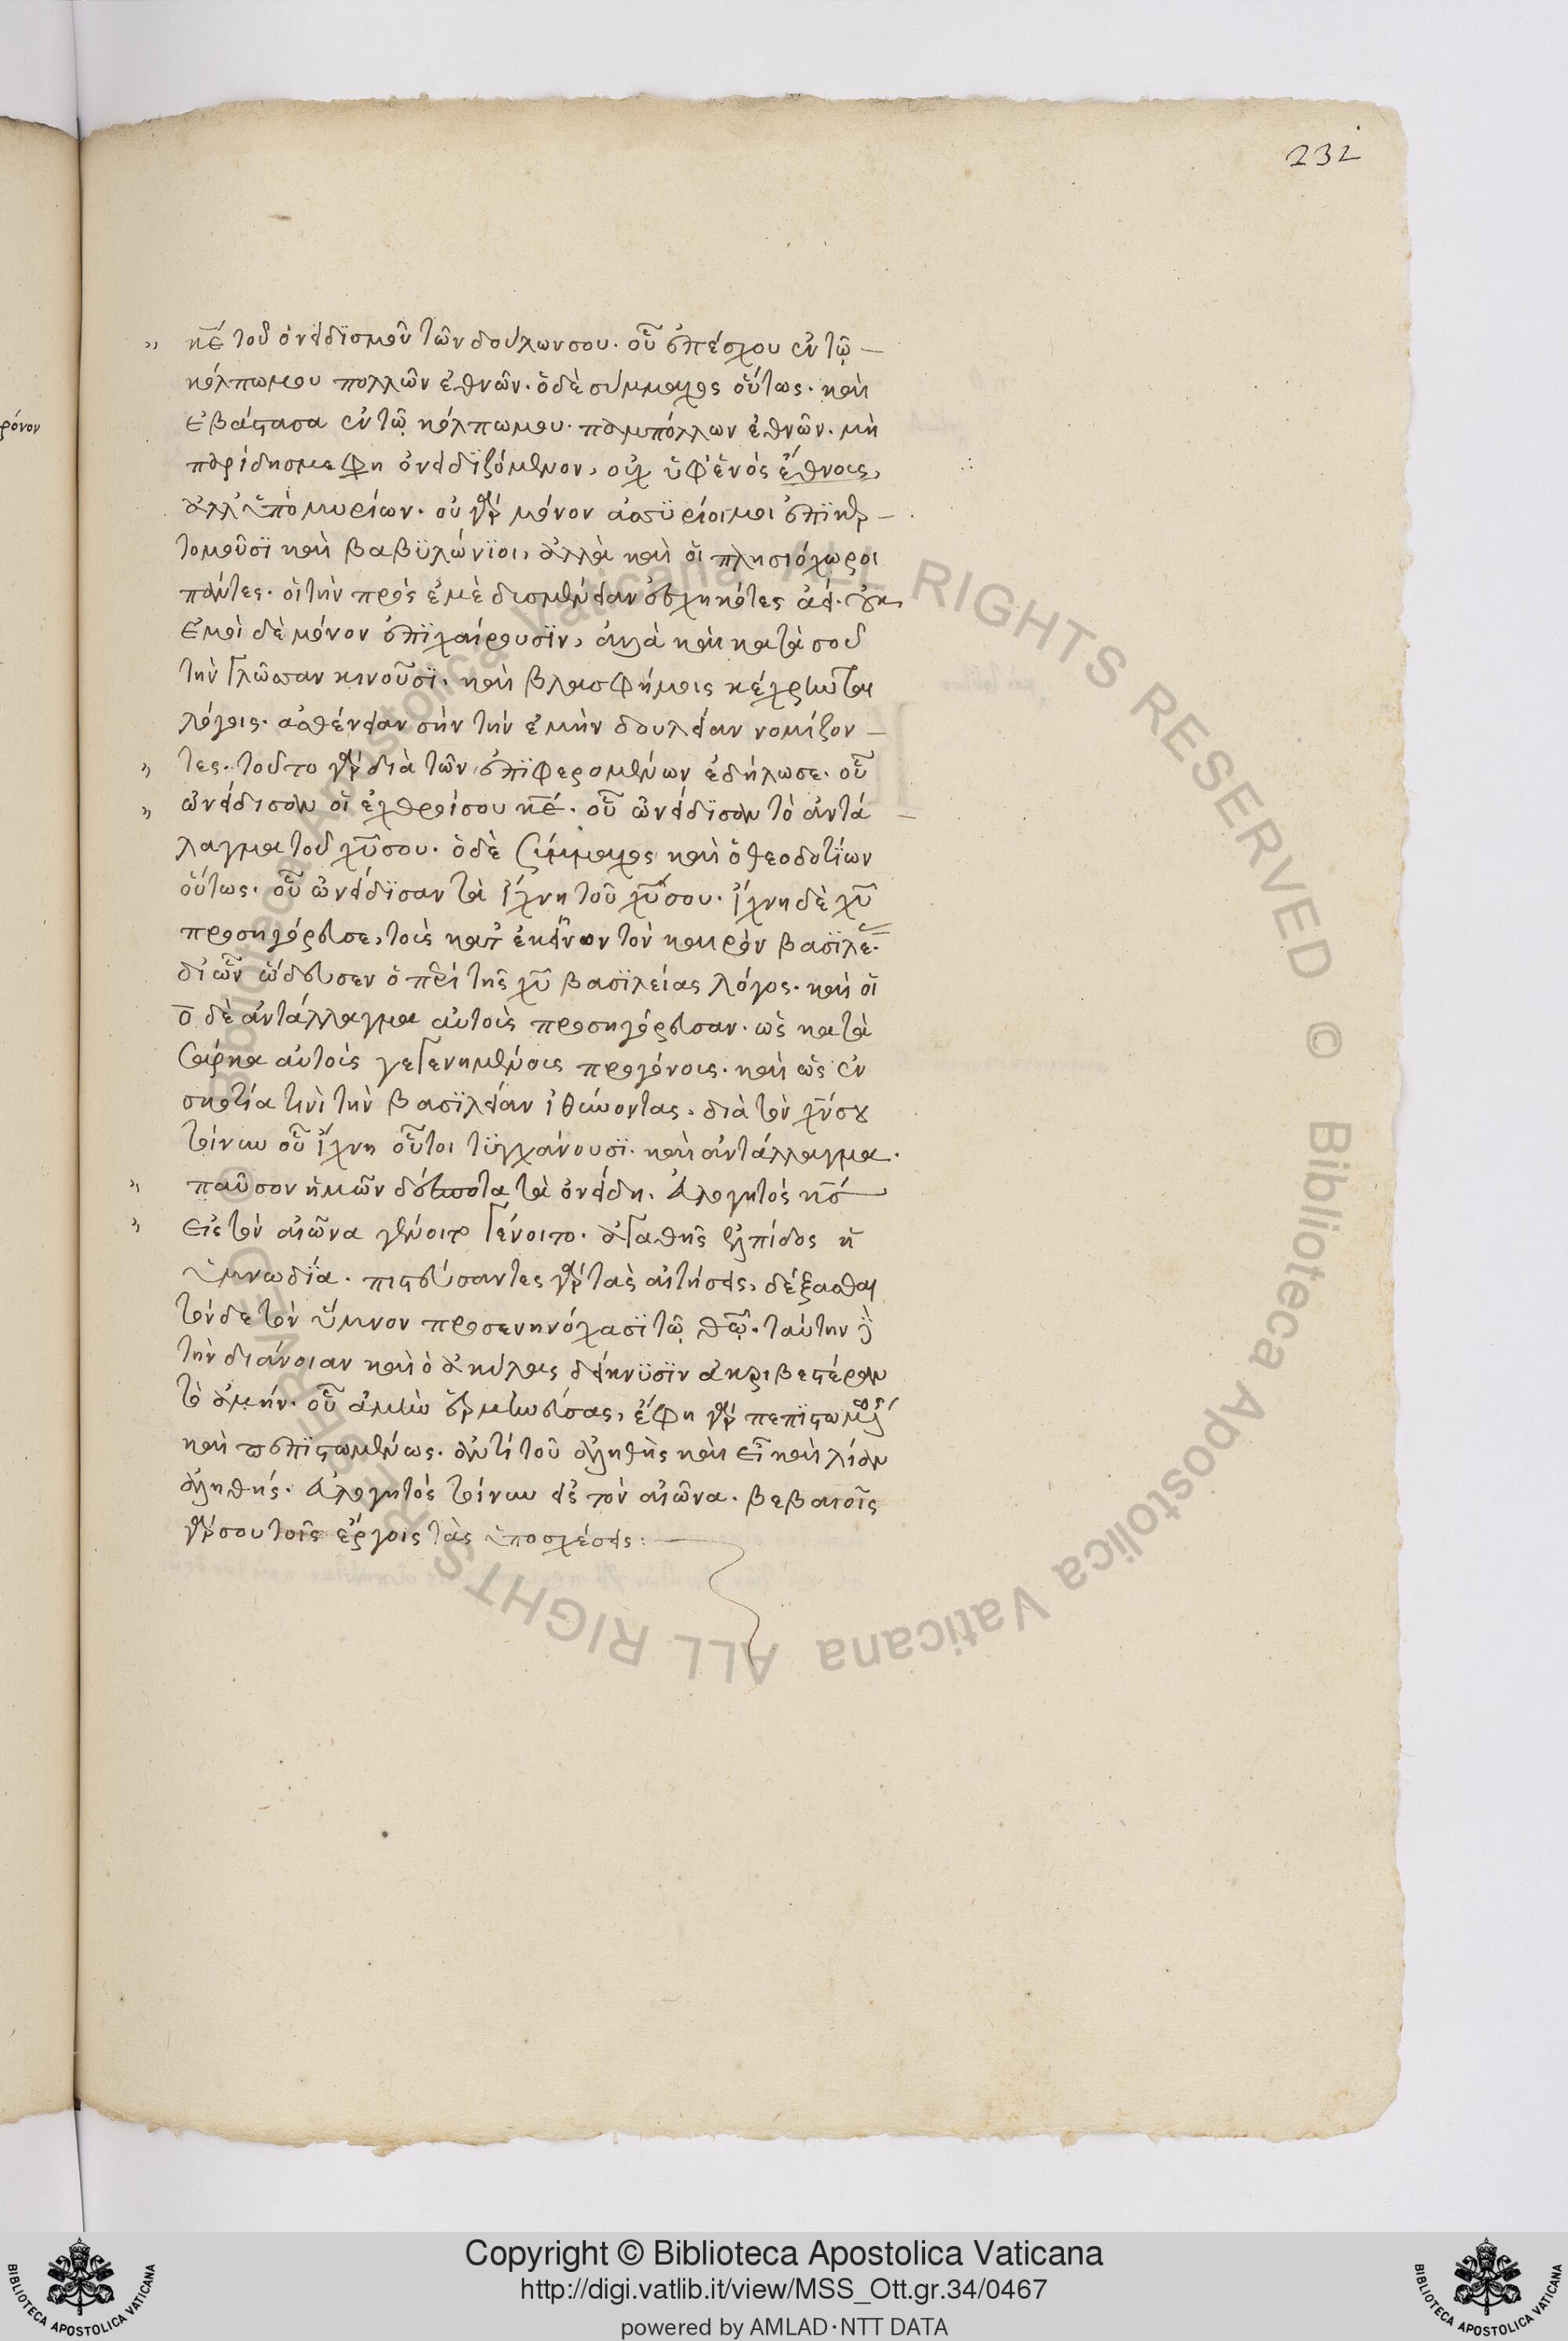 232
ρόνον
" κε̄ τοῦ ὀνειδϊσμοῦ τῶν δούλων σου. οὗ ὑπέσχου ἐν τῷ –
κόλπω μου πολλῶν ἐθνῶν. ὁ δὲ σύμμαχος οὕτως. καὶ
ἐβάστασα ἐν τῷ κόλπω μου. παμπόλλων ἐθνῶν. μὴ
παρίδης με φη ὀνειδϊζόμενον, οὐχ ὑφ' ἑνὸς ἔθνους,
ἀλλ' ὑπὸ μυρίων. οὐ γὰρ μόνον ἀσσϋριοί μοι ἐπϊκερ –
τομοῦσϊ καὶ βαβϋλώνϊοι, ἀλλὰ καὶ οἱ πλησιόχωροι
πάντες. οἱ τὴν πρὸς ἐμὲ δυσμένειαν ἐσχηκότες ἀεί. οὐκ
ἐμοὶ δὲ μόνον ἐπϊχαίρουσϊν, ἀλλὰ καὶ κατὰ σοῦ
τὴν γλῶσσαν κινοῦσϊ. καὶ βλασφήμοις κέχρηνται
λόγοις. ἀσθένειαν σὴν τὴν ἐμὴν δουλείαν νομίζον –
" τες. τοῦτο γὰρ διὰ τῶν ἐπϊφερομένων ἐδήλωσε. οὗ
" ὠνείδισαν οἱ ἐχθροί σου κε̄. οὗ ὠνείδϊσαν τὸ ἀντά –
λαγμα τοῦ χῡ σου. ὁ δὲ Σύμμαχος καὶ ὁ θεοδοτίων
οὕτως. οὗ ὠνείδϊσαν τὰ ἴχνη τοῦ χῡ σου. ἴχνη δὲ χῡ
προσηγόρευσε, τοὺς κατ' ἐκεῖνον τὸν καιρὸν βασϊλέας
δι' ὧν ὥδευσεν ὁ περὶ τῆς χῡ βασϊλείας λόγος. καὶ οἱ
ο̄ δὲ ἀντάλλαγμα αὐτοὺς προσηγόρευσαν. ὡς κατὰ
σάρκα αὐτοὺς γεγενημένους προγόνους. καὶ ὡς ἐν
σκοτία τινὶ τὴν βασϊλείαν ἰθύνοντας. διὰ τὸν χν̄ σου
τοίνυν οὗ ἴχνη οὗτοι τϋγχάνουσϊ. καὶ ἀντάλλαγμα.
" παῦσον ἡμῶν δέσποτα τὰ ὀνείδη. εὐλογητὸς κς̄
" εἰς τὸν αἰῶνα γένοιτο γένοιτο. ἀγαθῆς ἐλπίδος ἡ
ὑμνωδΐα. πιστεύσαντες γὰρ τὰς αἰτήσεις, δέξασθαι
τόνδε τὸν ὕμνον προσενηνόχασϊ τῷ θω̄. ταύτην
τὴν διάνοιαν καὶ ὁ ἀκύλας δείκνϋσϊν ἀκριβεστέραν
τὸ ἀμήν. οὗ ἀμὴν ἑρμηνεύσας, ἔφη γὰρ πεπϊστωμένως
καὶ πεπϊστωμένως. ἀντὶ τοῦ ἀληθὴς καὶ εἶ καὶ λίαν
ἀληθής. εὐλογητὸς τοίνυν εἶς τὸν αἰῶνα. βεβαιοῖς
γὰρ σου τοῖς ἔργοις τὰς ὑποσχέσεις:
Copyright © Biblioteca Apostolica Vaticana
http://digi.vatlib.it/view/MSS_Ott.gr.34/0467
powered by AMLAD·NTT DATA